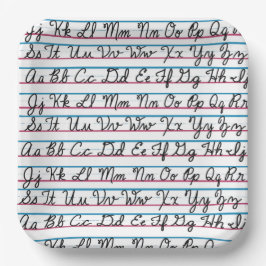 Jj Kk Ll Mm Nn Oo Pp Qq
Ss Tt Uu Vv Ww Xx Yy Zz
Aa Bb Cc Dd Ee Ff Gg Hh Ii Jj
Jj Kk Ll Mm Nn Oo Pp Qq Rr
Ss Tt Uu Vv Ww Xx Yy Zz
Aa Bb Cc Dd Ee Ff Gg Hh Ii Jj
Jj Kk Ll Mm Nn Oo Pp Qq Rr
Ss Tt Uu Vv Ww Xx Yy Zz
Aa Bb Cc Dd Ee Ff Gg Hh Ii
Jj Kk Ll Mm Nn Oo Pp Qq